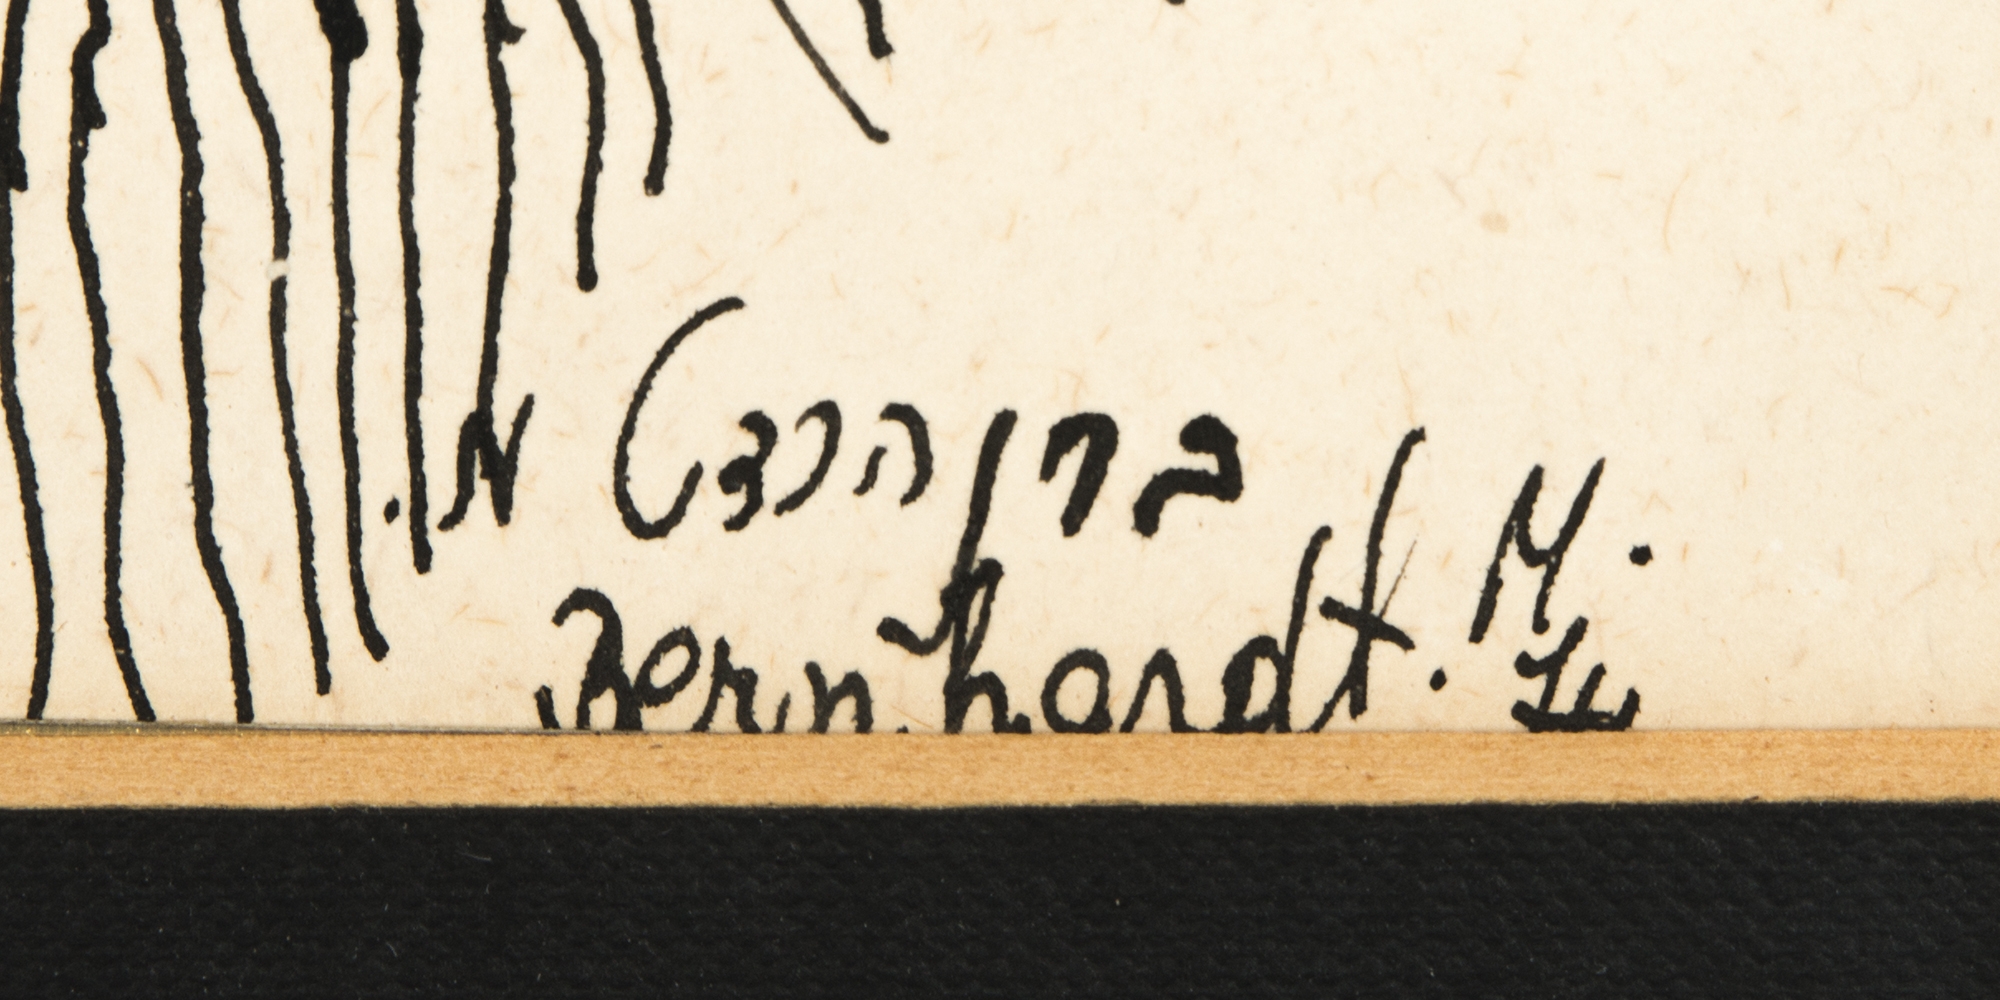 ברן הרדט מ.
Bernhardt. M.